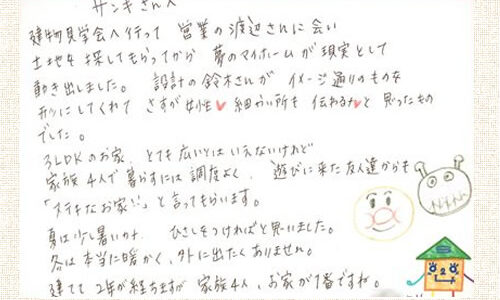 サンキさんへ
建物見学会へ行って 営業の渡辺さんに会い
土地を探してもらってから 夢のマイホームが現実として
動き出しました。 設計の鈴木さんが イメージ通りのものを
形にしてくれて さすが女性♥細かい所も 伝わるな♥と 思ったもの
でした。
3LDKのお家、とても広いとはいえないけれど
家族4人で暮らすには調度よく、 遊びに来た友人達からも
「ステキなお家!!」と言ってもらいます。
夏は少し暑いカナ、 ひさしをつければと思いました。
冬は本当に暖かく、外に出たくありません。
建てて 2年が経ちますが 家族4人、お家が1番ですね。